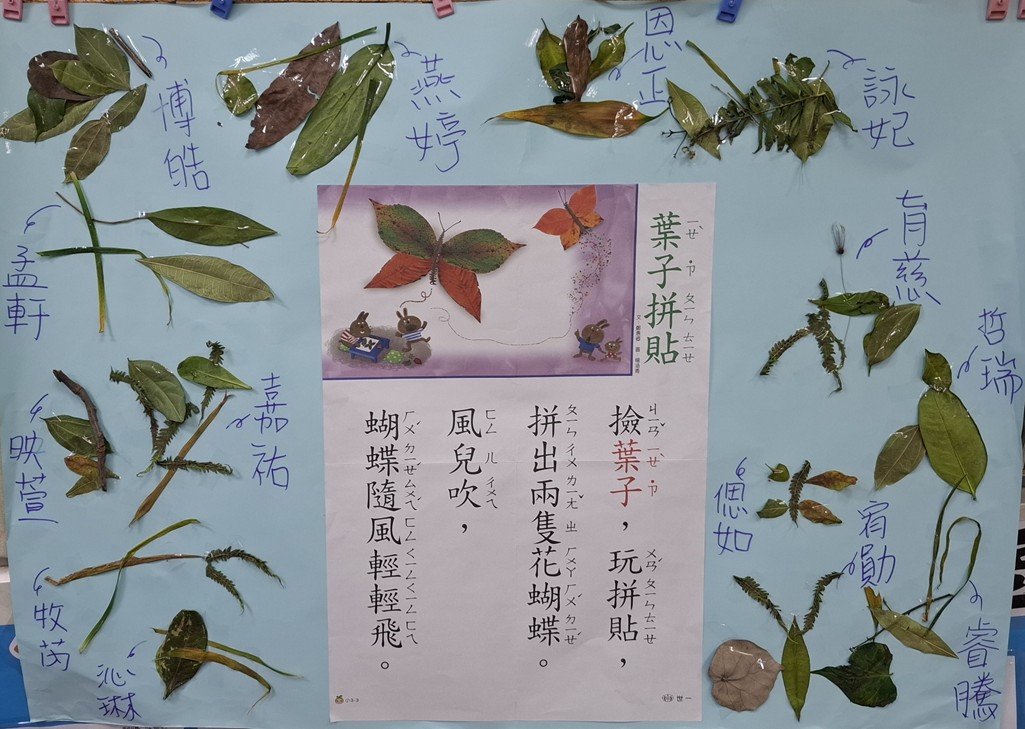 葉子拼貼
撿葉子，玩拼貼，
拼出兩隻花蝴蝶。
風兒吹，
蝴蝶隨風輕輕飛。
世一
博皓
燕婷
恩正
詠妃
孟軒
嘉祐
映萱
牧芮
沁琳
育慈
哲瑞
偲如
宥勛
睿騰